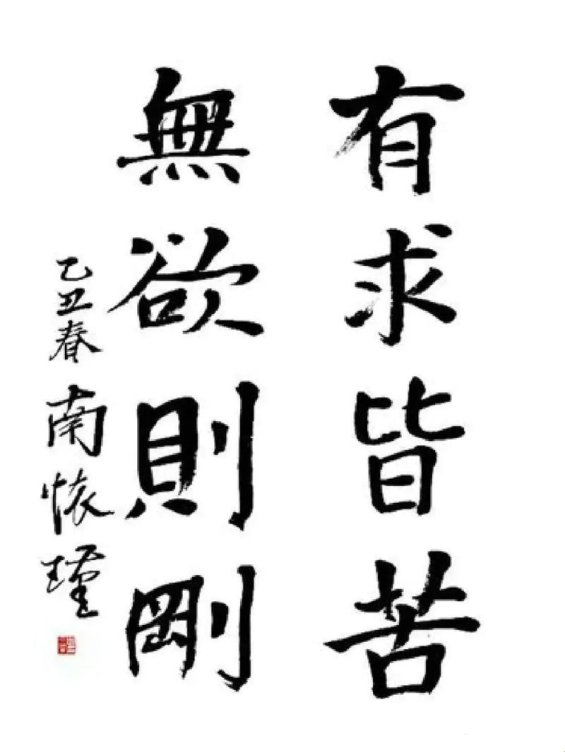 有求皆苦
無欲則剛
乙丑春南懷瑾